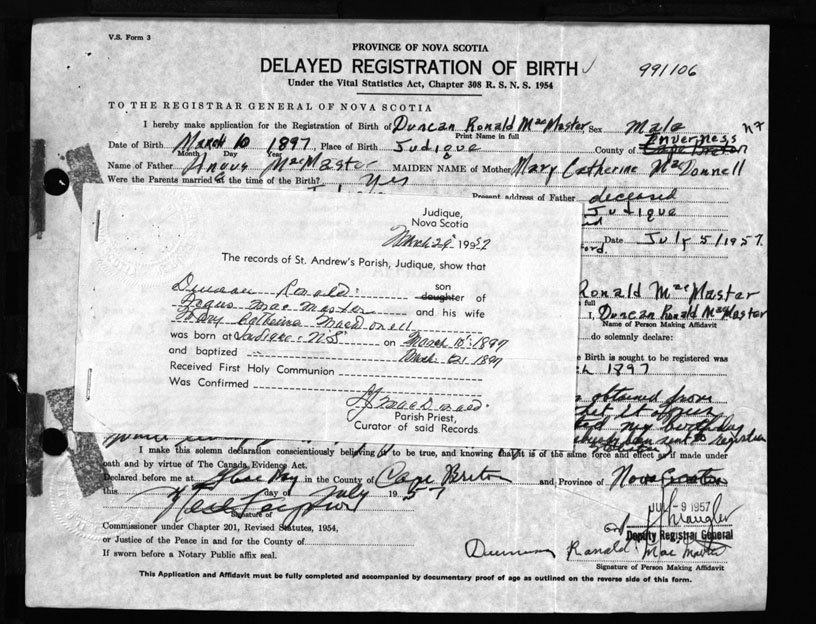 V.S. Form 3
PROVINCE OF NOVA SCOTIA
DELAYED REGISTRATION OF BIRTH
991106
Under the Vital Statistics Act, Chapter 308 R. S. N. S. 1954
TO THE REGISTRAR GENERAL OF NOVA SCOTIA
I hereby make application for the Registration of Birth of Duncan Ronald MacMaster, Sex Male
Print Name in full
Date of Birth March 10 1897, Place of Birth Judique County of Cape Breton Inverness
Month Day Year
Name of Father Angus MacMaster MAIDEN NAME of Mother Mary Catherine MacDonnell
Were the Parents married at the time of the Birth? Yes
Present address of Father deceased
Judique
Date July 5/1957.
Ronald MacMaster
full
I, Duncan Ronald MacMaster
Name of Person Making Affidavit
do solemnly declare:
Birth is sought to be registered was
1897
obtained from
my birthday
Judique,
Nova Scotia
March 1952
The records of St. Andrew's Parish, Judique, show that
Duncan Ronald son
daughter of
Angus MacMaster and his wife
Mary Catherine MacDonell
was born at Judique N.S. on March 10 1897
and baptized March 1897
Received First Holy Communion
Was Confirmed
Parish Priest,
Curator of said Records
I make this solemn declaration conscientiously believing it to be true, and knowing that it is of the same force and effect as if made under
oath and by virtue of The Canada Evidence Act.
Declared before me at Glace Bay in the County of Cape Breton and Province of Nova Scotia
this day of July 1957
Signature of
JUL -9 1957
Commissioner under Chapter 201, Revised Statutes, 1954,
Deputy Registrar General
or Justice of the Peace in and for the County of
If sworn before a Notary Public affix seal.
Duncan Ronald MacMaster
Signature of Person Making Affidavit
This Application and Affidavit must be fully completed and accompanied by documentary proof of age as outlined on the reverse side of this form.